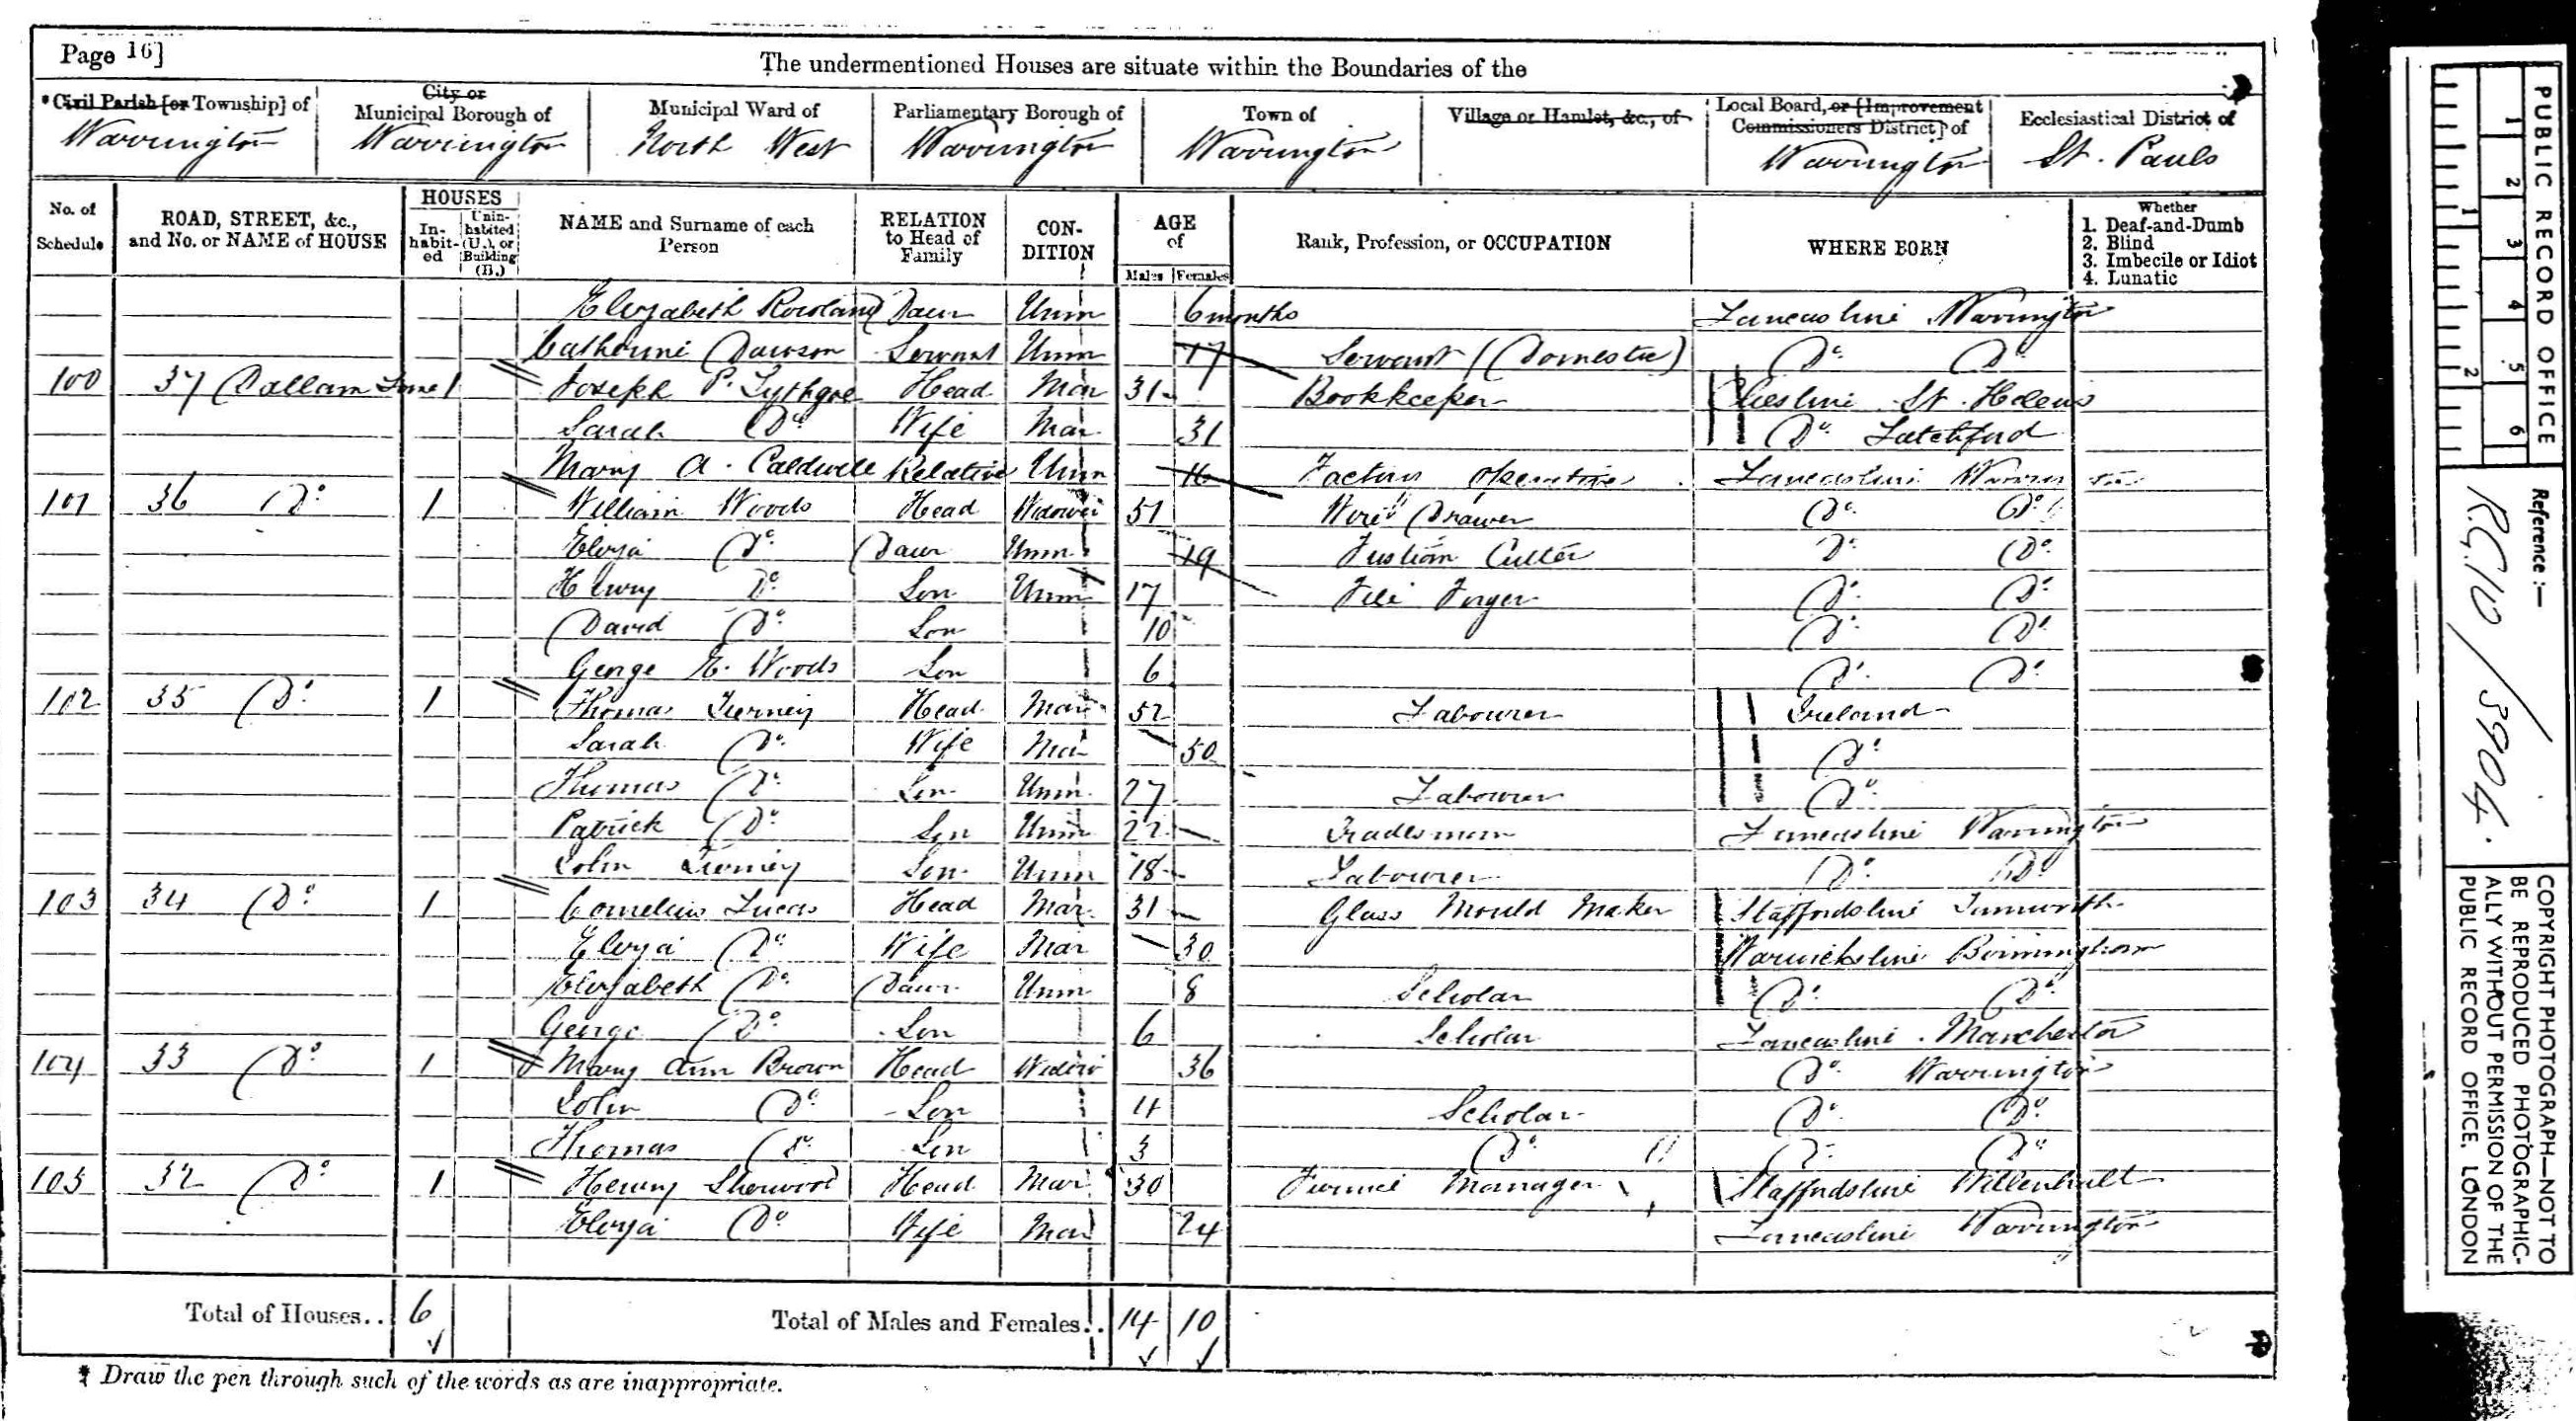 Page 16]
The undermentioned Houses are situate within the Boundaries of the
* Civil Parish [or Township] of
City or Municipal Borough of
Municipal Ward of
Parliamentary Borough of
Town of
Village or Hamlet, &c., of
Local Board, or [Improvement Commissioners District] of
Ecclesiastical District of
Warrington Warrington North West Warrington Warrington Warrington St. Pauls
No. of Schedule
ROAD, STREET, &c., and No. or NAME of HOUSE
HOUSES
In-habit-ed
Unin-habited (U.), or Building (B.)
NAME and Surname of each Person
RELATION to Head of Family
CON-DITION
AGE of
Males Females
Rank, Profession, or OCCUPATION
WHERE BORN
Whether
1. Deaf-and-Dumb
2. Blind
3. Imbecile or Idiot
4. Lunatic
Elizabeth Rowland Daur Unm 6 months Lancashire Warrington
Catherine Dawson Servant Unm 17 Servant (Domestic) Do. Do.
100 37 Dallam Lane 1 Joseph P. Lythgoe Head Mar 31 Bookkeeper Cheshire St. Helens
Sarah Do. Wife Mar 31 Do. Latchford
Mary A. Caldwell Relative Unm 16 Factory Operative Lancashire Warrington
101 36 Do. 1 William Woods Head Widower 51 Wire Drawer Do. Do.
Eliza Do. Daur Unm 19 Fustian Cutter Do. Do.
Henry Do. Son Unm 17 File Forger Do. Do.
David Do. Son 10 Do. Do.
George H. Woods Son 6 Do. Do.
102 35 Do. 1 Thomas Tierney Head Mar 52 Labourer Ireland
Sarah Do. Wife Mar 50 Do.
Thomas Do. Son Unm 27 Labourer Do.
Patrick Do. Son Unm 22 Tradesman Lancashire Warrington
John Tierney Son Unm 18 Labourer Do. Do.
103 34 Do. 1 Cornelius Lucas Head Mar 31 Glass Mould Maker Staffordshire Tamworth
Eliza Do. Wife Mar 30 Warwickshire Birmingham
Elizabeth Do. Daur Unm 8 Scholar Do. Do.
George Do. Son 6 Scholar Lancashire Manchester
104 33 Do. 1 Mary Ann Brown Head Widow 36 Do. Warrington
John Do. Son 4 Scholar Do. Do.
Thomas Do. Son 3 Do. Do. Do.
105 32 Do. 1 Henry Sherwood Head Mar 30 Manager Staffordshire Willenhall
Eliza Do. Wife Mar 24 Lancashire Warrington
Total of Houses.. 6
Total of Males and Females.. 14 10
* Draw the pen through such of the words as are inappropriate.
PUBLIC RECORD OFFICE
1 2 3 4 5 6
1 2
Reference :—
R.G. 10 / 3904
COPYRIGHT PHOTOGRAPH—NOT TO
BE REPRODUCED PHOTOGRAPHIC-
ALLY WITHOUT PERMISSION OF THE
PUBLIC RECORD OFFICE, LONDON